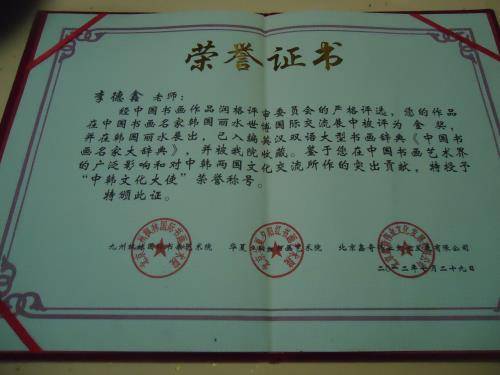 荣誉证书
李德鑫 老师：
经中国书画作品润格评审委员会的严格评选，您的作品
在中国书画名家韩国丽水世博国际交流展中被评为金奖，
并在韩国丽水展出，已入编英汉双语大型书画辞典《中国书
画名家大辞典》，并被我院收藏。鉴于您在中国书画艺术界
的广泛影响和对中韩两国文化交流所作的突出贡献，特授予
“中韩文化大使”荣誉称号。
特颁此证。
九州 国 书画艺术院 华夏 艺术院 北京鑫奇 有限公司
二〇一二年 月二十九日